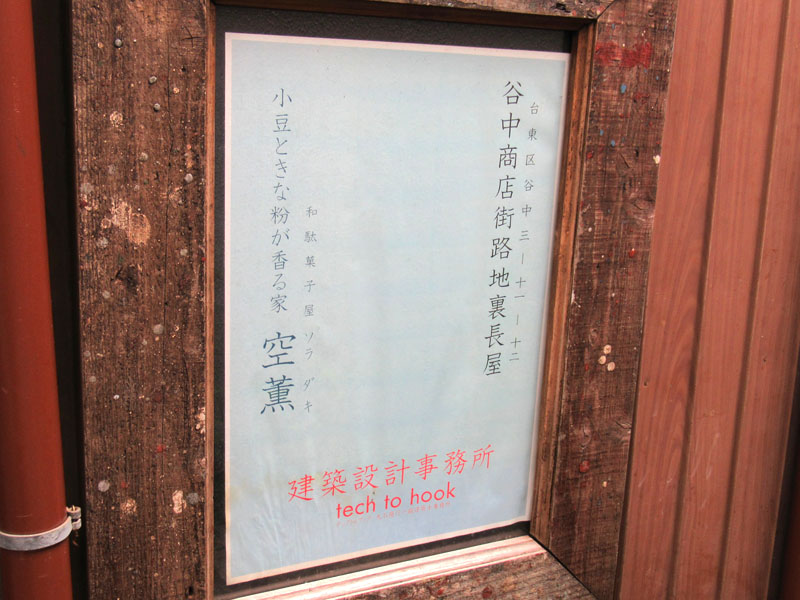 台東区谷中三ー十一ー十二
谷中商店街路地裏長屋
和駄菓子屋ソラダキ
小豆ときな粉が香る家 空薫
建築設計事務所
tech to hook